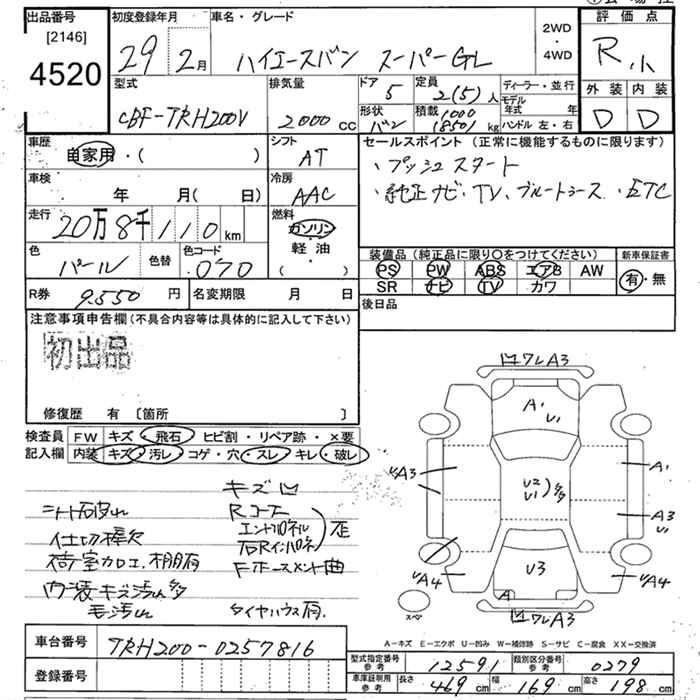 出品番号 初度登録年月 車名・グレード 2WD・4WD 評価点
[2146]
4520 29 2月 ハイエースバン スーパーGL R小
型式 排気量 ドア 5 定員 2(5)人 ディーラー・並行 外装 内装
CBF-TRH200V 2000cc 形状 バン 積載 1000(850)kg モデル年式 年 ハンドル 左・右 D D
車歴 自家用・( ) シフト AT セールスポイント (正常に機能するものに限ります)
・プッシュスタート
車検 年 月( 日) 冷房 AAC ・純正ナビ、TV、ブルートゥース、ETC
走行 20万8千110km 燃料 ガソリン・軽油・( )
色 パール 色替 色コード 070
装備品 (純正品に限り○をつけてください) 新車保証書
PS PW ABS エアB AW 有・無
SR ナビ TV カワ
R券 9550円 名変期限 月 日 後日品
注意事項申告欄(不具合内容等は具体的に記入して下さい)
初出品
修復歴 有 〔箇所 〕
検査員記入欄 FW キズ・飛石・ヒビ割・リペア跡・×要
内装 キズ・汚レ・コゲ・穴・スレ・キレ・破レ
キズ凹
シート破れ Rコーナー
仕切棒欠 エンドパネル 歪
荷室カロエ、棚有 右Rインパネ
内装キズ汚れ多 Fホースメント曲
毛汚れ タイヤハウス有
凹ワレA3
A1
U1
A3
A1
U2
U1
多
A3
U1
U3
A4
A
A4
スペア
凹ワレA3
A-キズ E-エクボ U-凹み W-補修跡 S-サビ C-腐食 XX-交換済
車台番号 TRH200-0257816
登録番号
型式指定番号 参考 12591 類別区分番号 参考 0279
車庫証明用 参考 長さ 469cm 幅 169cm 高さ 198cm